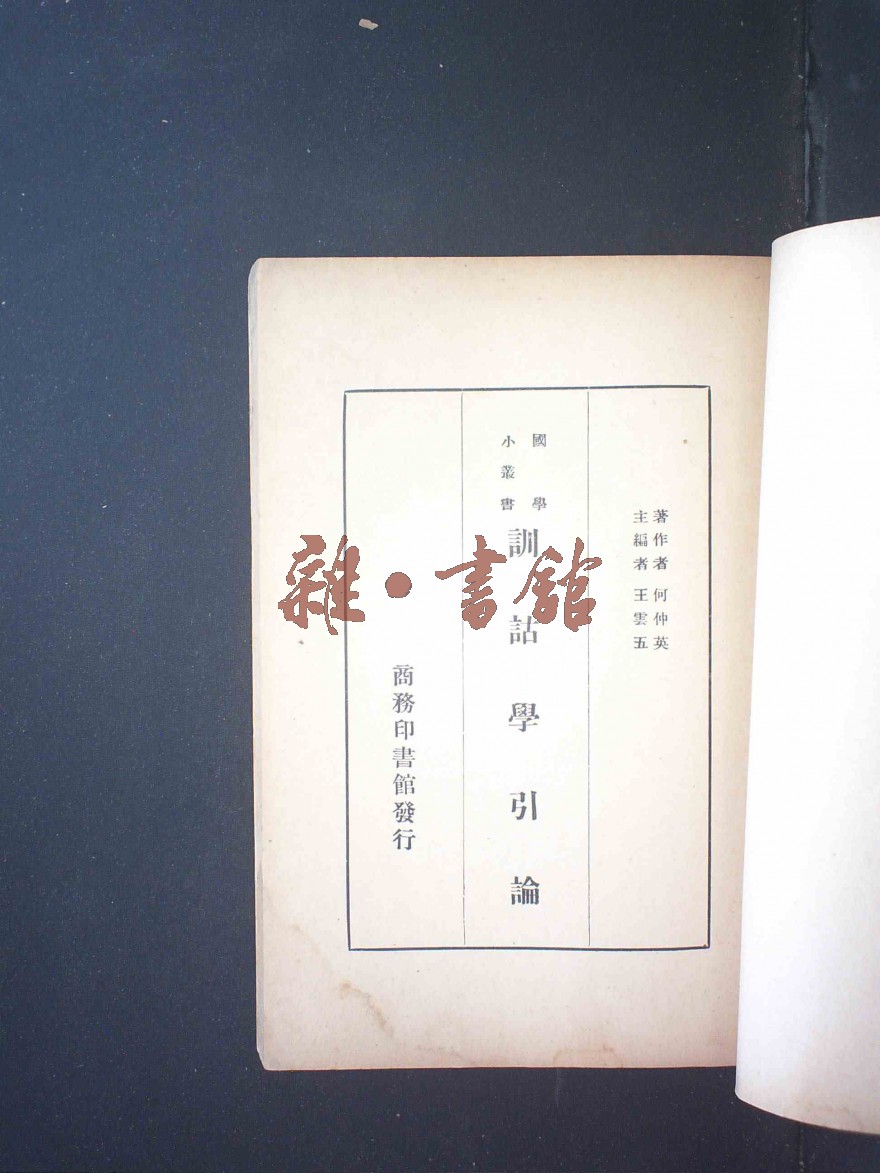 著作者 何仲英
主編者 王雲五
國學
小叢書
訓詁學引論
商務印書館發行
雜·書館